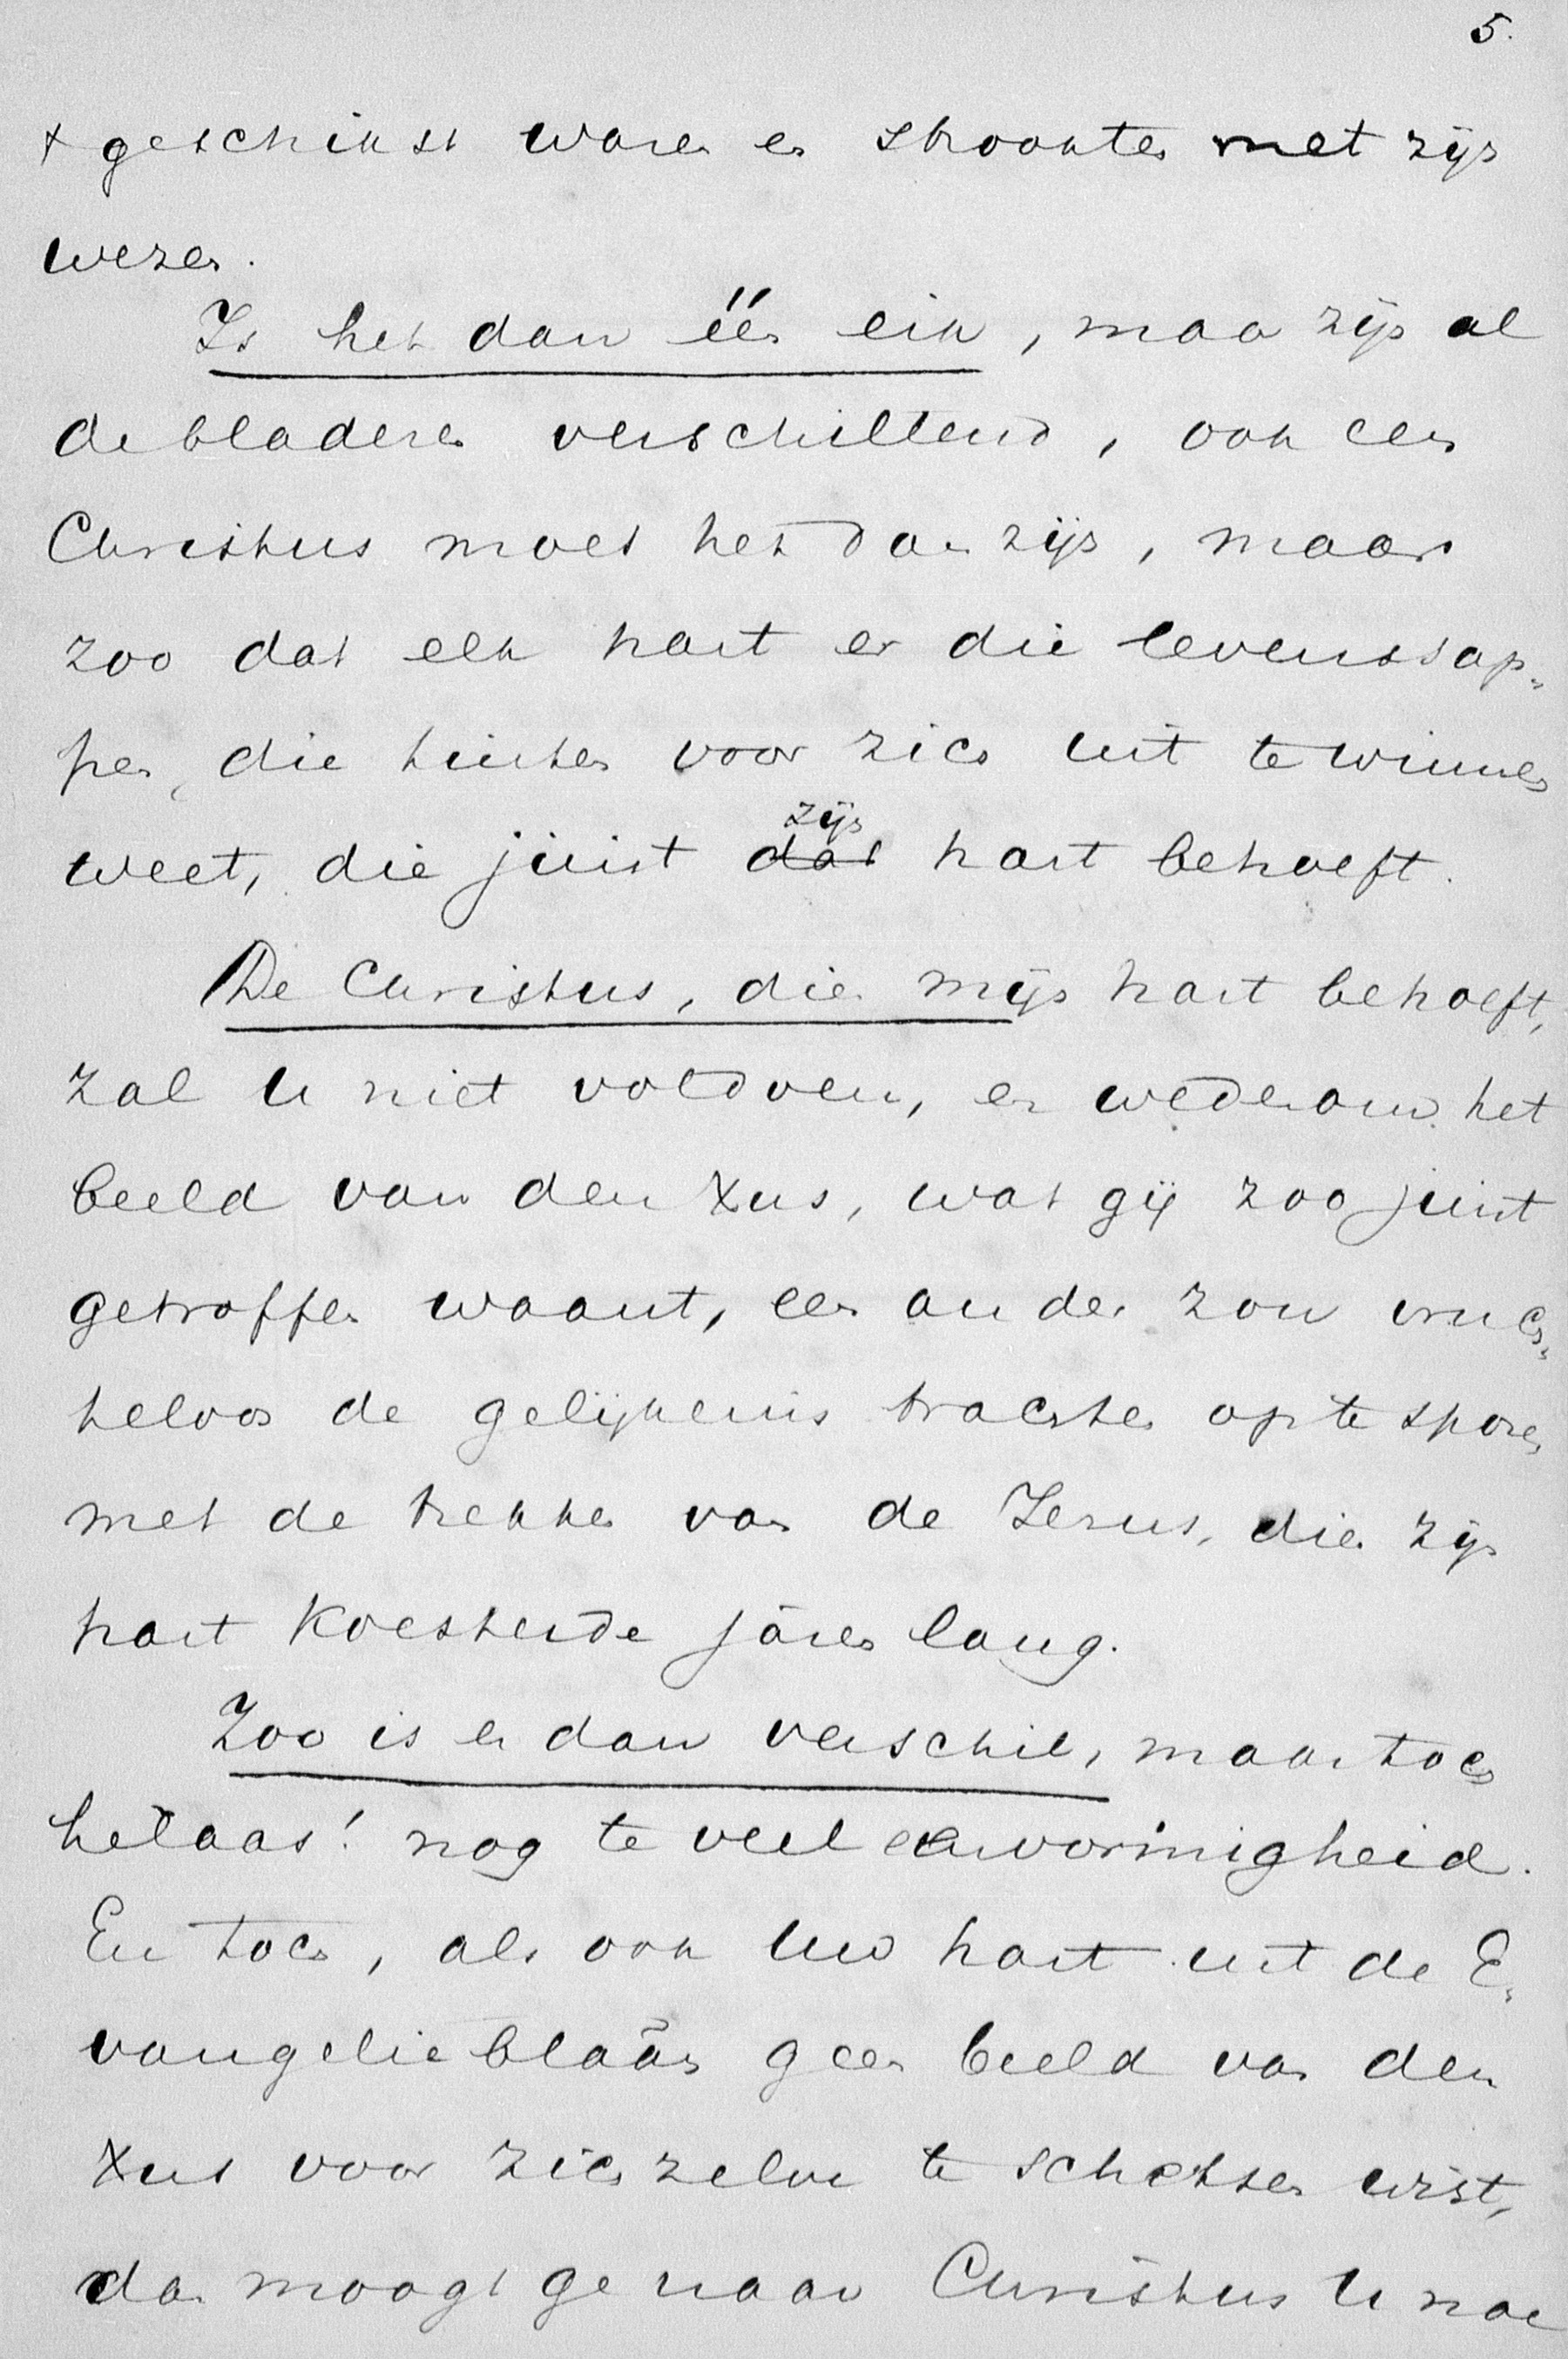 5.
+ geschikst waren en strookten met zijn
wezen.
Is het dan één eik, maar zijn al
de bladeren verschillend, ook één
Christus moet het dan zijn, maar
zoo dat elk hart er die levenssap-
pen, die tinten voor zich uit te winnen
zijn
weet, die juist dat hart behoeft.
De Christus, die mijn hart behoeft,
zal U niet voldoen, en wederom het
beeld van den Xus, wat gij zoo juist
getroffen waant, een ander zou vruch-
teloos de gelijkenis trachten op te sporen
met de trekken van de Jezus, die zijn
hart koesterde jaren lang.
Zoo is er dan verschil, maar toch
helaas! nog te veel eenvormigheid.
En toch, als ook Uw hart uit de E-
vangeliebladen geen beeld van den
Xus voor zich zelve te schetsen wist,
dan moogt ge naar Christus U noe